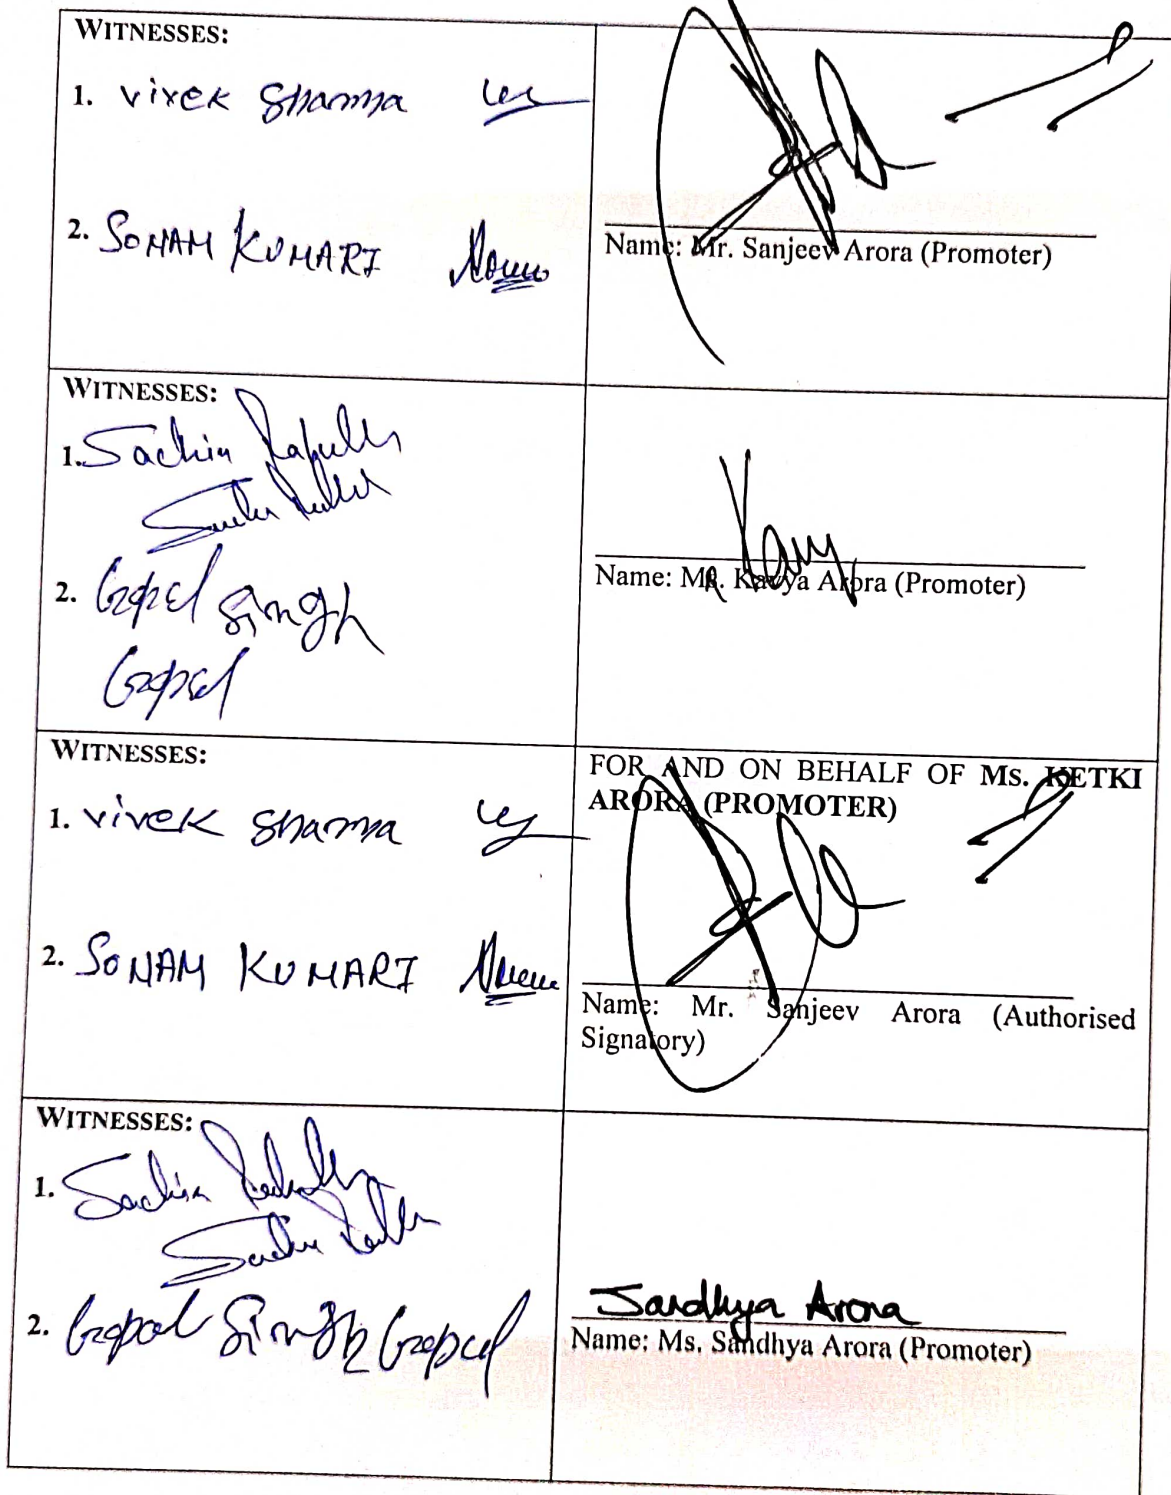 WITNESSES:
1. vivek sharma
2. SONAM KUMARI
Name: Mr. Sanjeev Arora (Promoter)
WITNESSES:
1. Sachin
2. Gopal Singh
Gopal
Name: Mr. Kavya Arora (Promoter)
WITNESSES:
1. vivek sharma
2. SONAM KUMARI
FOR AND ON BEHALF OF MS. KETKI
ARORA (PROMOTER)
Name: Mr. Sanjeev Arora (Authorised
Signatory)
WITNESSES:
1. Sachin
2. Gopal Singh Gopal
Sandhya Arora
Name: Ms. Sandhya Arora (Promoter)